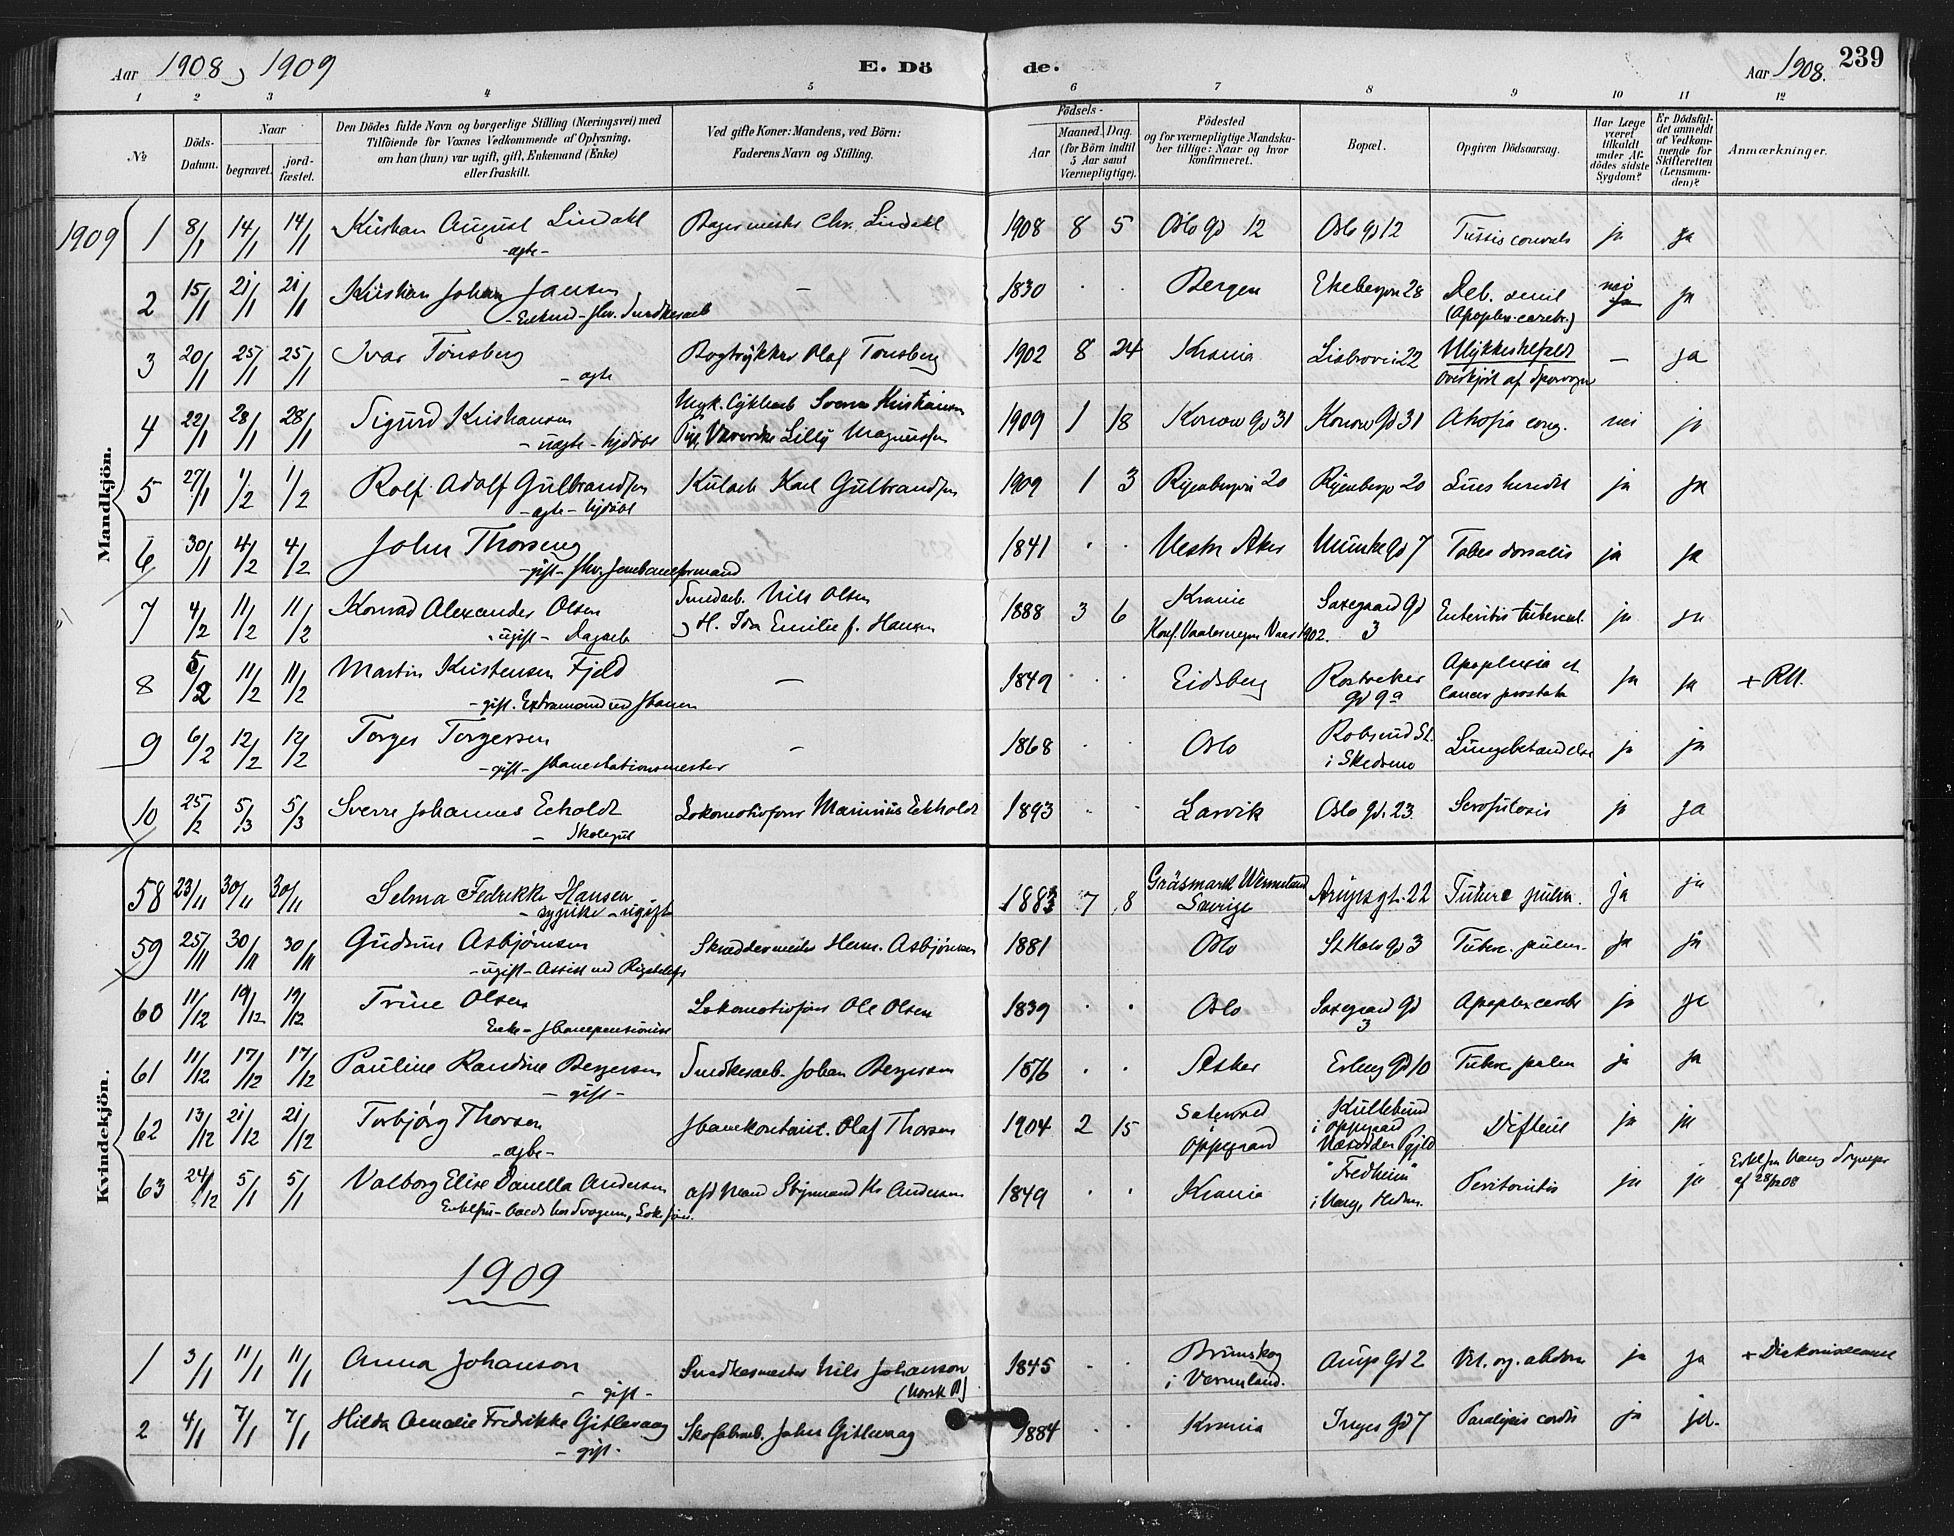 Aar 1908, 1909 E. Dö de. Aar 1908. 239
1 2 3 4 5 6 7 8 9 10 11 12
No Döds-Datum. Naar begravet. jord-fæstet. Den Dödes fulde Navn og borgerlige Stilling (Næringsvei) med Tilföiende for Voxnes Vedkommende af Oplysning, om han (hun) var ugift, gift, Enkemand (Enke) eller fraskilt. Ved gifte Koner: Mandens, ved Börn: Faderens Navn og Stilling. Födsels- Aar Maaned. Dag. (for Börn indtil 5 Aar samt Værnepligtige). Födested og for værnepligtige Mandskaber tillige: Naar og hvor konfirmeret. Bopæl. Opgiven Dödsaarsag. Har Læge været tilkaldt under Afdödes sidste Sygdom? Er Dödsfaldet anmeldt af Vedkommende for Skifteretten (Lensmanden)? Anmærkninger.
Mandkjön.
1909 1 8/1 14/1 14/1 Kristian August Lindahl Bagermester Chr. Lindahl 1908 8 5 Oslo gd 12 Oslo gd 12 Tussis convuls ja ja
-ægte-
2 15/1 21/1 21/1 Kristian Johan Jansen — 1830 . . Bergen Ekebergvn 28 Deb. senil nei ja
-Enkemd- (Apoplex. cerebr.)
3 20/1 25/1 25/1 Ivar Tønsberg Bogtrykker Olaf Tønsberg 1902 8 24 Krania 22 Ulykkestilfælde — ja
-ægte Overkjørt af Sporvogn
4 22/1 28/1 28/1 Sigurd Kristiansen Kristiansen 1909 1 18 Konow Gd 31 Konow Gd 31 Atrofia cong. nei ja
-uægte- hjdøbt Lilly Magnussen
5 27/1 1/2 1/2 Rolf Adolf Gulbrandsen Karl Gulbrandsen 1909 1 3 Ryenbergvn 20 Ryenbergv 20 Lues heredit ja ja
-ægte- hjdøbt
6 30/1 4/2 4/2 John Thorseng 1841 . . Vestre Aker Munke Gd 7 Tabes dorsalis ja ja
-gift-
7 4/2 11/2 11/2 Konrad Alexander Olsen Smedarb. Nils Olsen 1888 3 6 Krania Saxegaard Gd Enteritis tubercul. ja ja
-ugift- Dagarb og H. Ida Emilie f. Hansen Konf. Vaalerengen Vaar 1902. 3
8 5/2 11/2 11/2 Martin Kristensen Fjeld — 1849 . . . Eidsberg Apoplexia et ja ja + RH.
-gift. Extramand ved Jbanen gd 9a Cancer prostata
9 6/2 12/2 12/2 Torger Torgersen — 1868 . . Oslo Robsrud St. Lungebetændelse ja ja
-gift- Jbanestationsmester i Skedsmo
10 25/2 5/3 5/3 Sverre Johannes Eckholdt Lokomotivfører Marinius Eckholdt 1893 . . Larvik Oslo gd. 23. Scrofulosis ja ja
- Skolegut
Kvindekjön.
58 23/11 30/11 30/11 Selma Fedrikke Hansen 1883 7 8 Gräsmark Wermeland Arupsgt. 22 Tuberc pulm. ja ja
- sypike - ugift Sverige
59 25/11 30/11 30/11 Gudrun Asbjørnsen Skræddermester Herm. Asbjørnsen 1881 . . Oslo St Hals gd 3 Tuberc. pulm. ja ja
-ugift- Assist ved Rigstelef
60 11/12 19/12 19/12 Trine Olsen Lokomotivfører Ole Olsen 1839 . . Oslo Saxegaard Gd Apoplex. cerebr ja ja
Enke- Jbanepensionist 3
61 11/12 17/12 17/12 Pauline Randine Bergersen Snedkerarb. Johan Bergersen 1876 . . Asker Erling Gd 10 Tuberc. pulm ja ja
-gift-
62 13/12 21/12 21/12 Torbjørg Thorsen Jbanekontorist. Olaf Thorsen 1904 2 15 Kullebund Difteri ja ja
-ægte- Oppegaard i Oppegaard
63 24/12 5/1 5/1 Valborg Elise Danella Andersen afd Mand Styrmand Andersen 1849 . . Krania "Fredheim" Peritonitis ja ja af 28/12 08
i Vang, Hedm.
1909
1 3/1 11/1 11/1 Anna Johanson Snedkermester Nils Johanson 1845 . . Brunskog Arups Gd 2 Vit. org. abdom ja ja + Diakonissehuset
-gift- (Norsk B) i Vermland.
2 4/1 7/1 7/1 Hilda Amalie Fredrikke Gitlevaag Skofabarb. John Gitlevaag 1884 . . Krania Inges Gd 7 Paralysis cordis ja ja.
-gift-